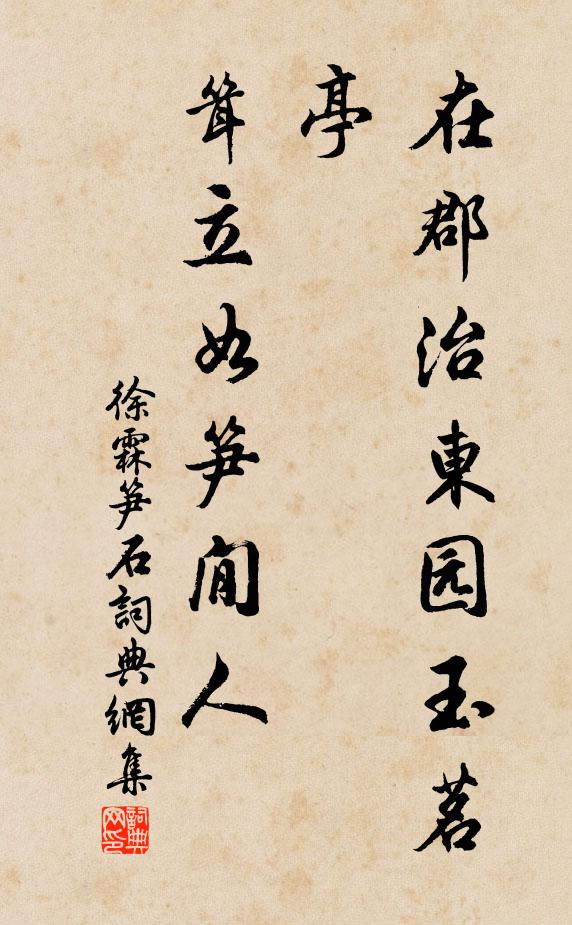 在郡治東园玉茗
亭
茸立如笋間人
徐霖笋石詞典網集
詞典网印